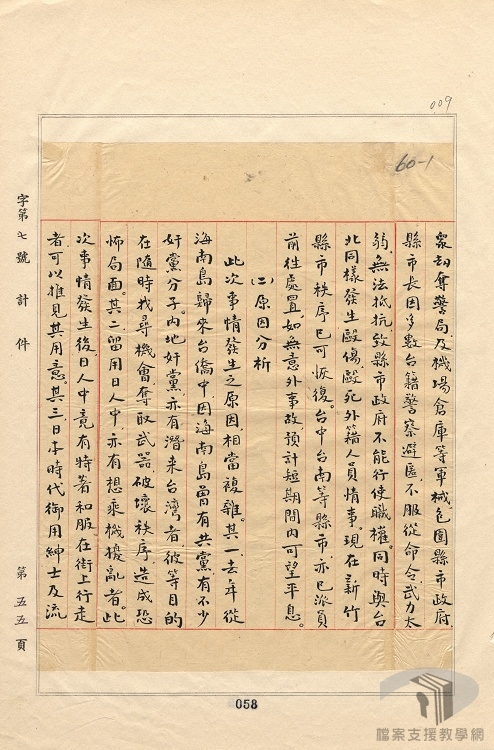 009
60-1
眾劫奪警局及機場倉庫等軍械、包圍縣市政府、
縣市長因多數台籍警察避匿、不服從命令、武力太
弱、無法抵抗、致縣市政府不能行使職權、同時與台
北同樣發生毆傷毆死外籍人員情事。現在新竹
縣市秩序已可恢復。台中台南等縣市、亦已派員
前往處置、如無意外事故、預計短期間內可望平息。
(二)原因分析
此次事情發生之原因、相當複雜。其一、去年從
海南島歸來台僑中、因海南島曾有共黨、有不少
奸黨分子、內地奸黨、亦有潛來台灣者、彼等目的
在隨時找尋機會、奪取武器、破壞秩序、造成恐
怖局面。其二、留用日人中、亦有想乘機擾亂者。此
次事情發生後、日人中竟有特著和服、在街上行走
者、可以推見其用意。其三、日本時代御用紳士及流
字第七號計 件
第五五頁
058
檔案支援教學網